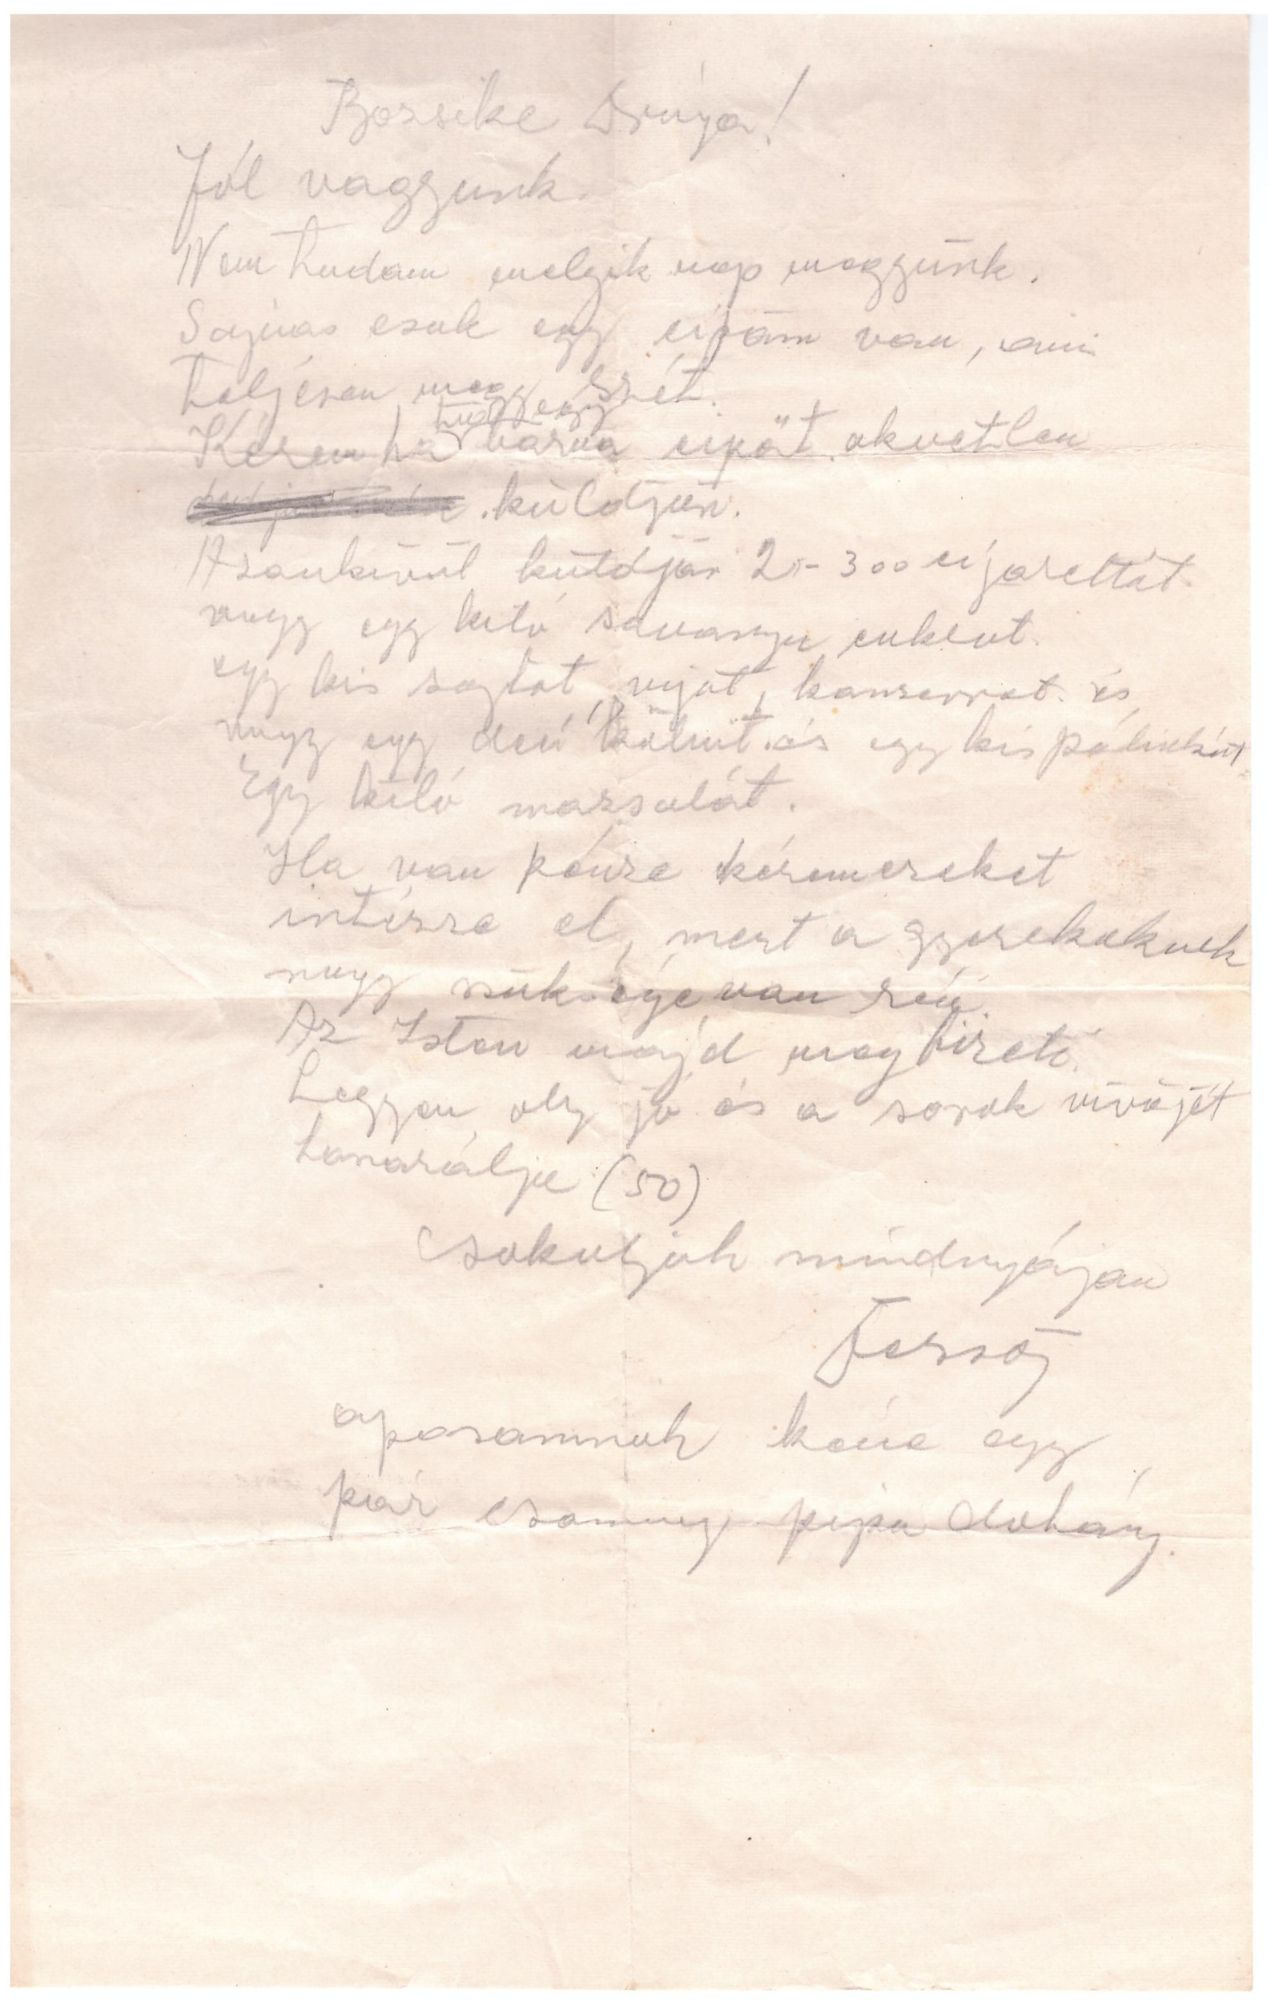 Bözsike Drága!
Jól vagyunk.
Nem tudom melyik nap megyünk.
Sajnos csak egy cipőm van, ami
teljesen megy szét.
Kérem ha tud egy barna cipőt okvetlen
küldjön.
Azonkívül küldjön 2-300 cigarettát
vagy egy kiló savanyu cukrot.
egy kis sajtot, vajat, konzervet és
vagy egy deci kölnit és egy kis pálinkát.
Egy kiló mazsolát.
Ha van pénze kérem ezeket
intézze el, mert a gyerekeknek
nagy szüksége van reá
Az Isten majd meg fizeti.
Legyen oly jó és a sorok vivőjét
honorálja (50)
Csokoljuk mindnyájan
aposomnak kéne egy
pár csomag pipa dohány.